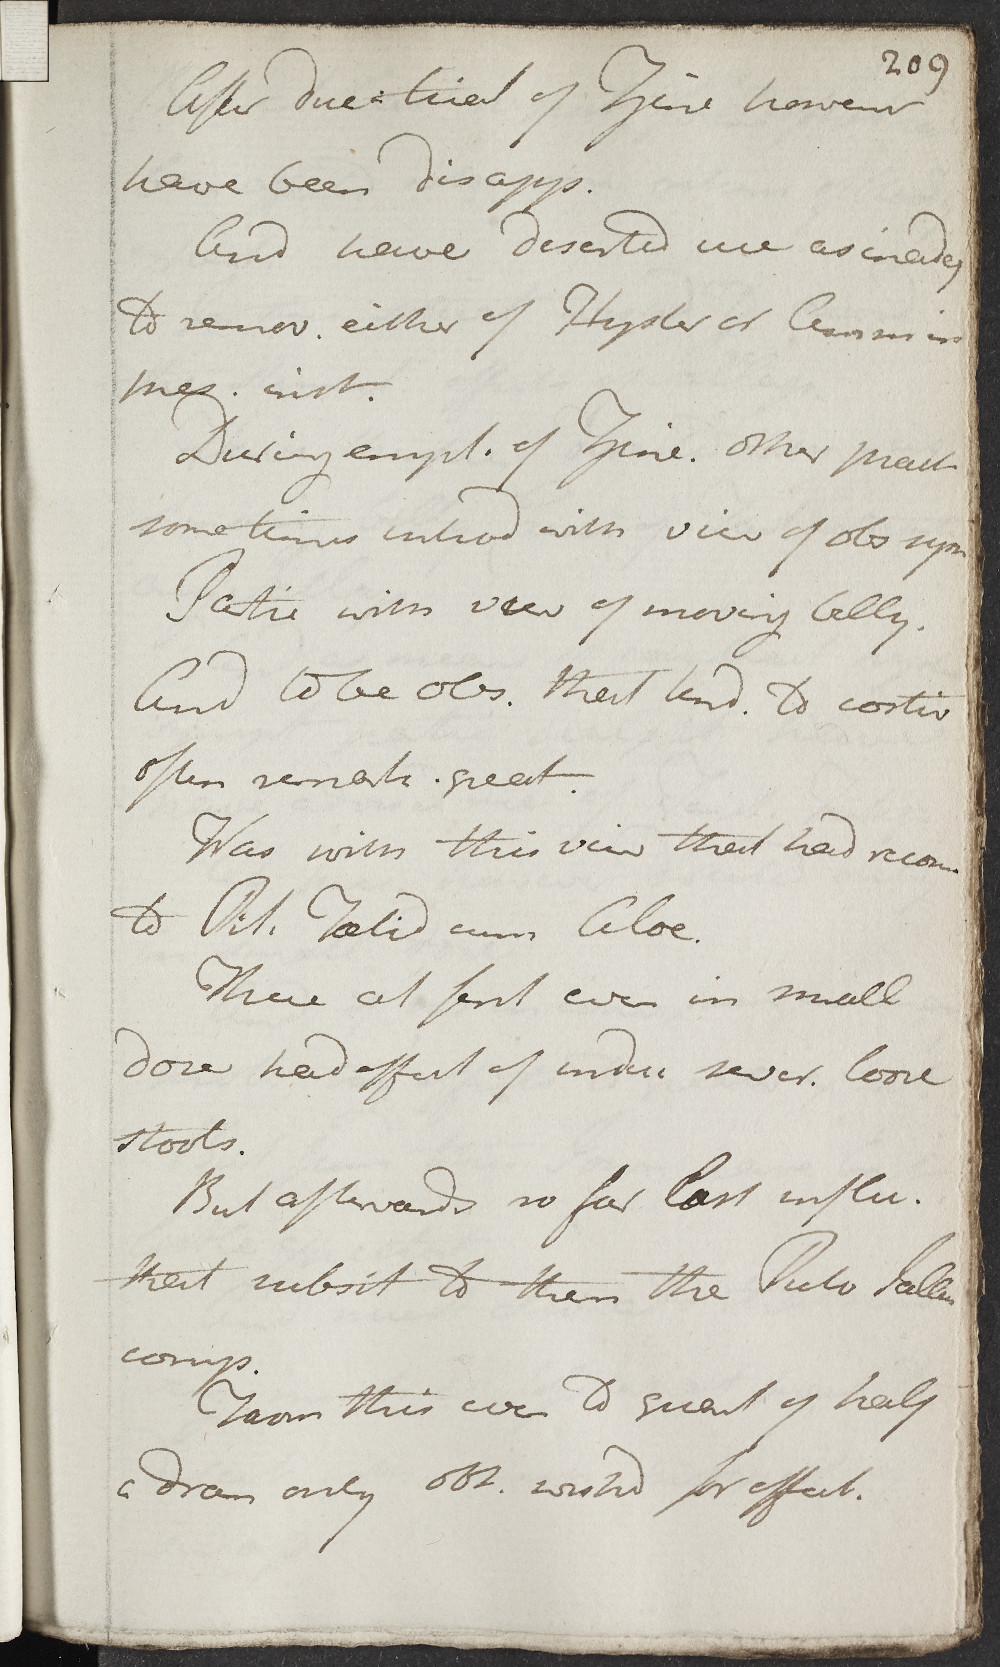 209
After due trial of Zinc however
have been disapp.
And have deserted use as inadeq
to remov. either of Hyster or Amen in
pres. inst.
During empl. of Zinc. other pract
sometimes introd with view of obv sym
Partic with view of moving belly.
And to be obs. that tend. to costiv
often remark. great.
Was with this view that had recour
to Pil. Fœtid cum Aloe.
These at first even in small
dose had effect of induc sever. loose
stools.
But afterwards so far lost influ.
that subsit to them the Pulv Jallap
comp.
From this even to quant of half
a dram only obt. wishd for effect.